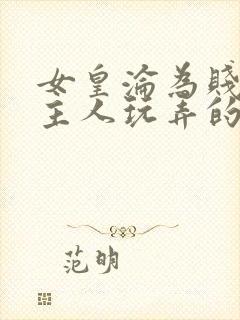 女皇淪為賤
主人玩弄的
范明